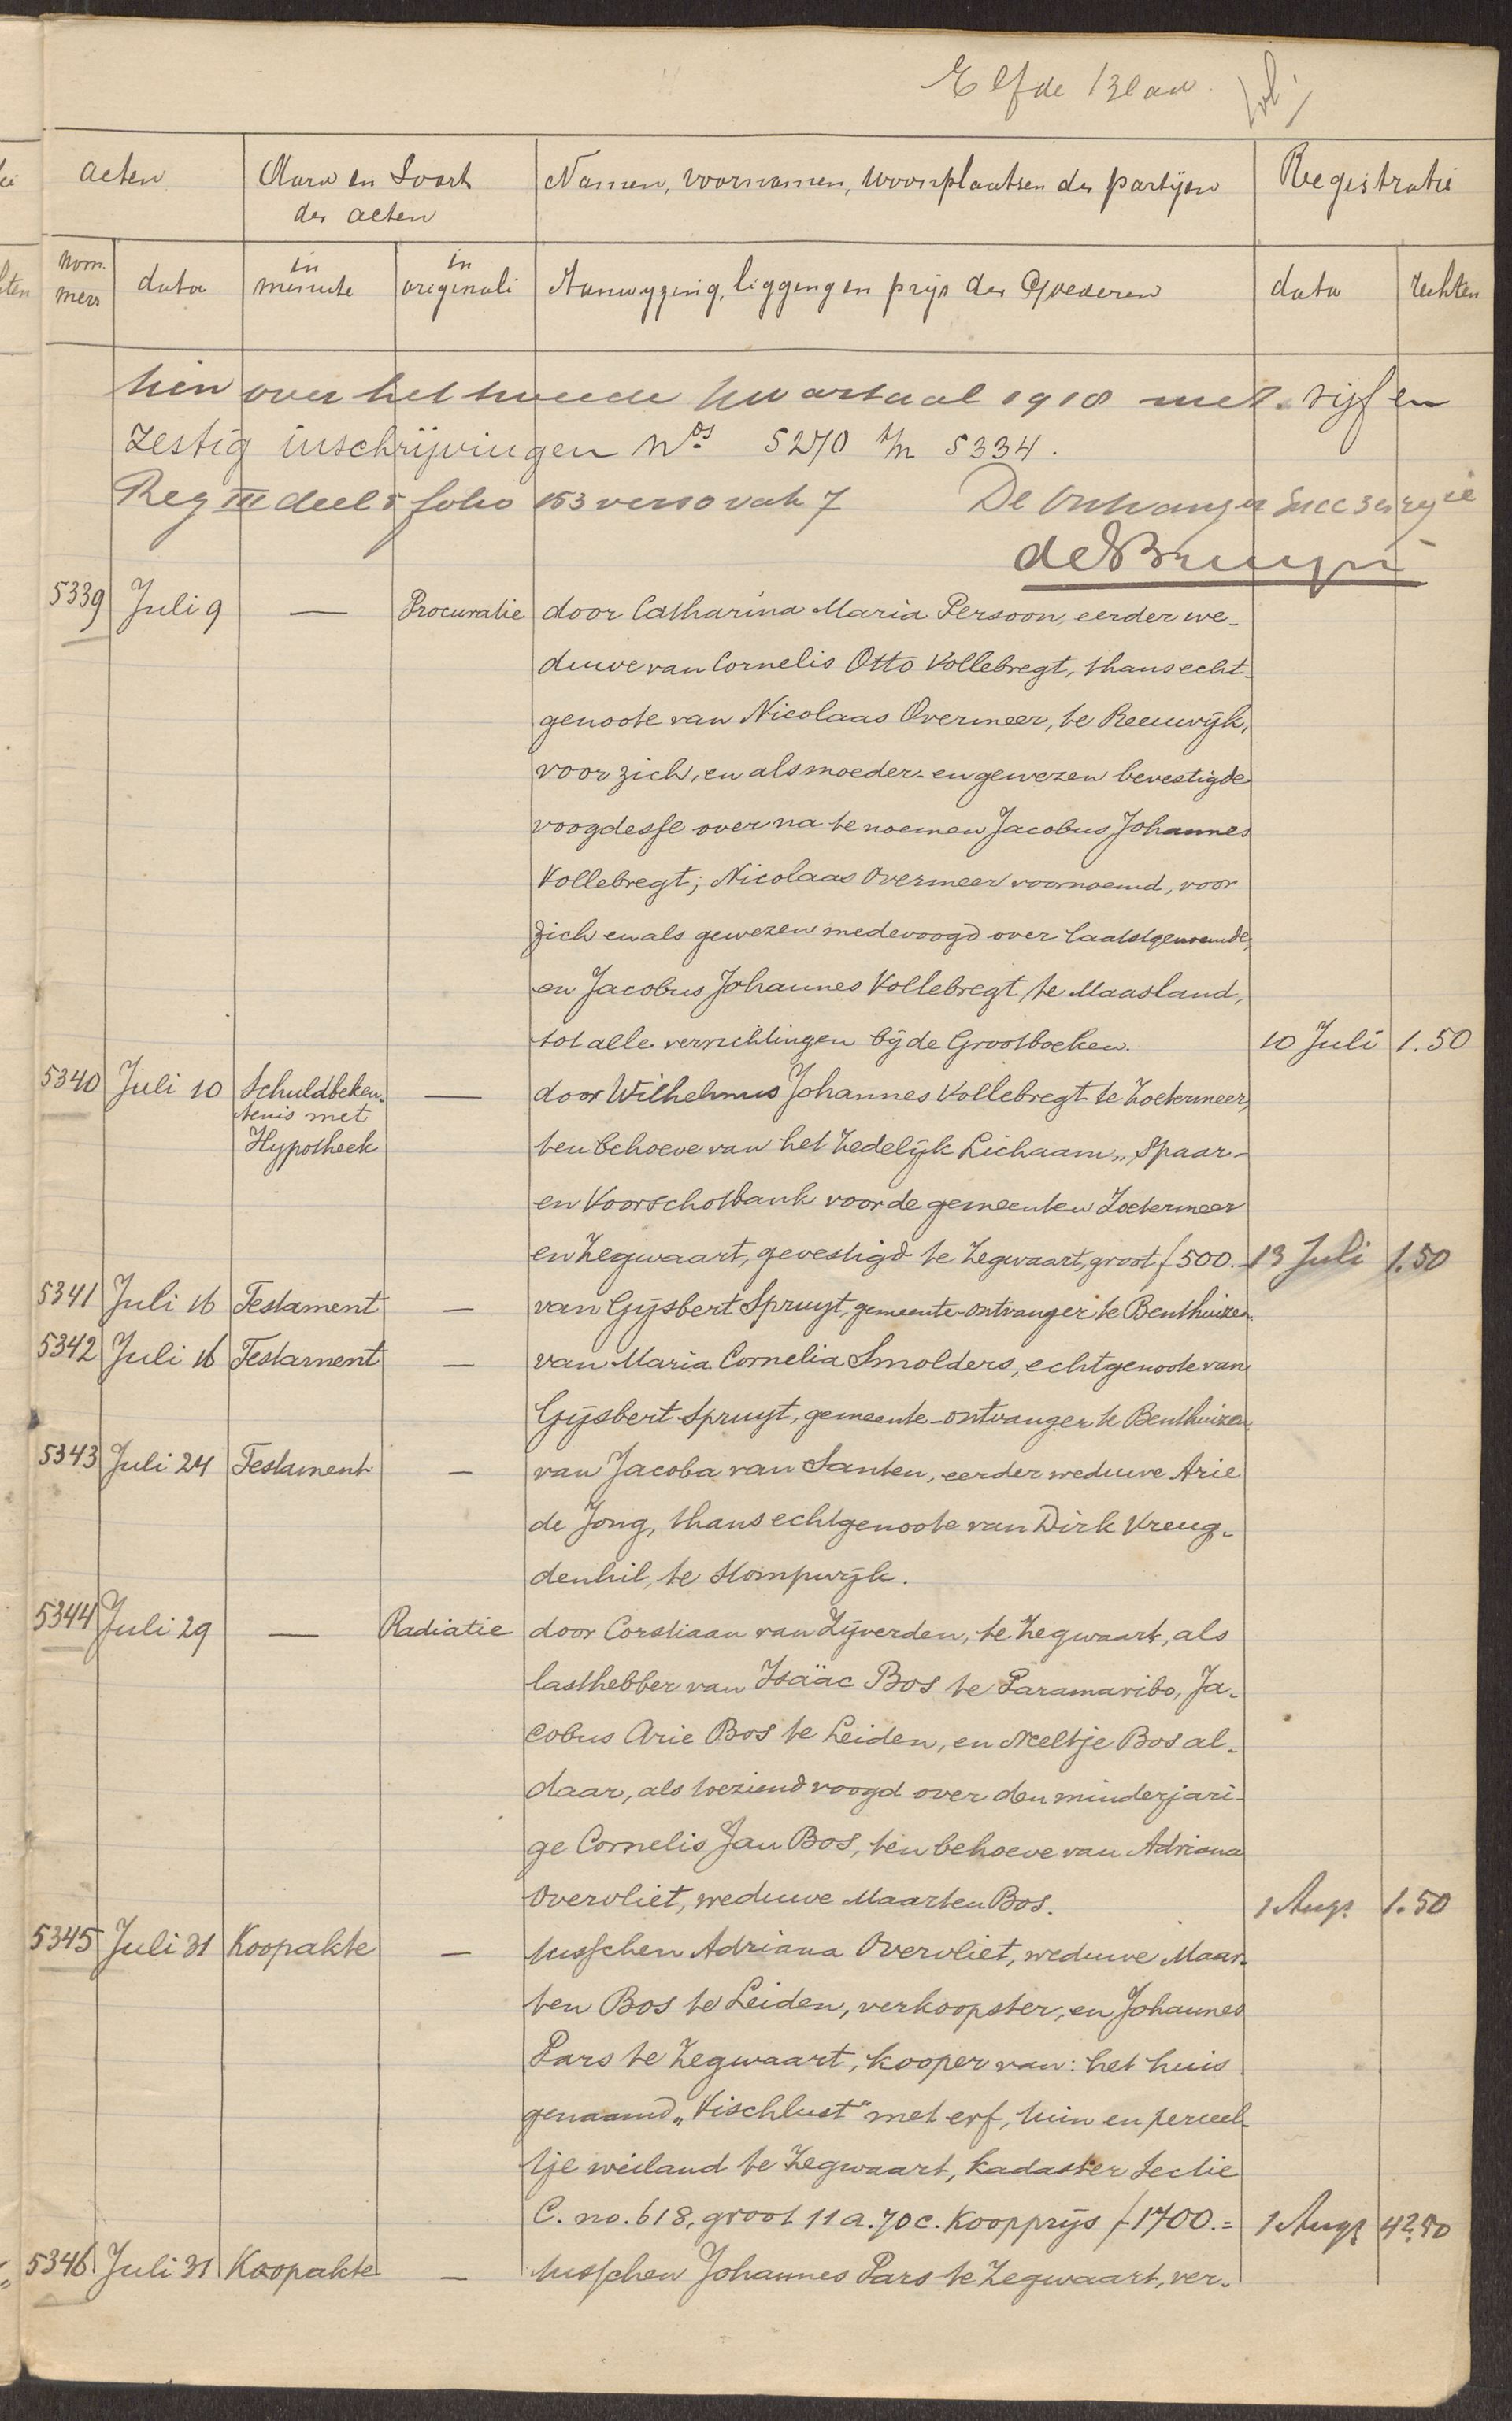 Elfde Blad.
acten
Aard en Soort
der acten
Namen, voornamen, woonplaatsen der partijen
Registratie
nom-
mers
data
in
minute
in
originali
Aanwyzing, ligging en prijs der Goederen
data
rechten
hier over het tweede kwartaal 1918 met vijf en
zestig inschrijvingen Nos 5270 t/m 5334.
Reg III deel 5 folio 153 verso vak 7 De Ontvanger Succes
5339 Juli 9 — Procuratie door Catharina Maria Persoon, eerder we-
duwe van Cornelis Otto Vollebregt, thans echt-
genoote van Nicolaas Overmeer, te Reeuwijk,
voor zich, en als moeder- en gewezen bevestigde
voogdesse over na te noemen Jacobus Johannes
Vollebregt; Nicolaas Overmeer voornoemd, voor
zich en als gewezen medevoogd over laatstgenoemde,
en Jacobus Johannes Vollebregt te Maasland,
tot alle verrichtingen bij de Grootboeken. 10 Juli 1.50
5340 Juli 10 Schuldbeken- — door Wilhelmus Johannes Vollebregt te Zoetermeer,
tenis met
Hypotheek ten behoeve van het Zedelijk Lichaam „Spaar-
en Voorschotbank voor de gemeenten Zoetermeer
en Zegwaart, gevestigd te Zegwaart, groot f 500.- 13 Juli 1.50
5341 Juli 16 Testament — van Gijsbert Spruyt, gemeente-ontvanger te Benthuizen.
5342 Juli 16 Testament — van Maria Cornelia Smolders, echtgenoote van
Gijsbert Spruyt, gemeente-ontvanger te Benthuizen.
5343 Juli 24 Testament — van Jacoba van Santen, eerder weduwe Arie
de Jong, thans echtgenoote van Dirk Vreug-
denhil, te Stompwijk.
5344 Juli 29 — Radiatie door Corstiaan van Zijverden, te Zegwaart, als
lasthebber van Isaäc Bos te Paramaribo, Ja-
cobus Arie Bos te Leiden, en Neeltje Bos al-
daar, als toeziend voogd over den minderjari-
ge Cornelis Jan Bos, ten behoeve van Adriana
Overvliet, weduwe Maarten Bos. 1 Augs 1.50
5345 Juli 31 Koopakte — tusschen Adriana Overvliet, weduwe Maar-
ten Bos te Leiden, verkoopster, en Johannes
Pars te Zegwaart, kooper van: het huis
genaamd „Vischlust" met erf, tuin en perceel-
tje weiland te Zegwaart, kadaster Sectie
C. no. 618, groot 11 a. 70 c. Koopprijs f 1700.= 1 Augs 42.50
5346 Juli 31 Koopakte — tusschen Johannes Pars te Zegwaart, ver-